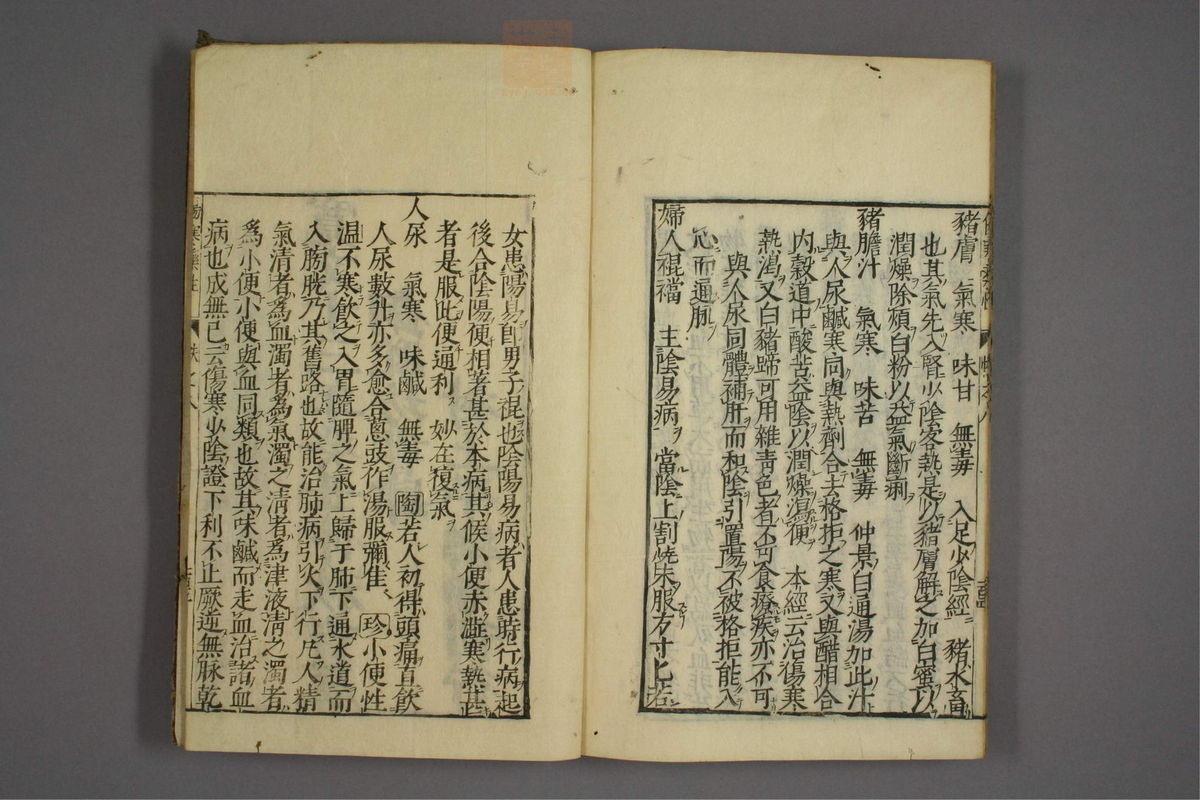 豬膚　氣寒　味甘　無毒　入足少陰經　豬水畜
也其氣先入腎少陰客熱是以豬膚解之加白蜜以
潤燥除煩白粉以益氣斷痢
豬膽汁　氣寒　味苦　無毒　仲景白通湯加此汁
與人尿鹹寒同與熱劑合去格拒之寒又與醋相合
內穀道中酸苦益陰以潤燥瀉便　本經云治傷寒
熱渴又白豬蹄可用雜青色者不可食療疾亦不可
與人尿同體補肝而和陰引置陽不被格拒能入
心而通脉
婦人裩襠　主陰易病　當陰上割燒末服方寸匕若
女患陽易即男子裩也陰陽易病者人患時行病起
後合陰陽便相著甚於本病其候小便赤澁寒熱甚
者是服此便通利　妙在復氣
人尿　氣寒　味鹹　無毒　陶若人初得頭痛直飲
人尿數升亦多愈合蔥豉作湯服彌佳　珍小便性
温不寒飲之入胃隨脾之氣上歸于肺下通水道而
入膀胱乃其舊路也故能治肺病引火下行凡人精
氣清者爲血濁者爲氣濁之清者爲津液清之濁者
爲小便小便與血同類也故其味鹹而走血治諸血
病也成無已云傷寒少陰證下利不止厥逆無脉乾